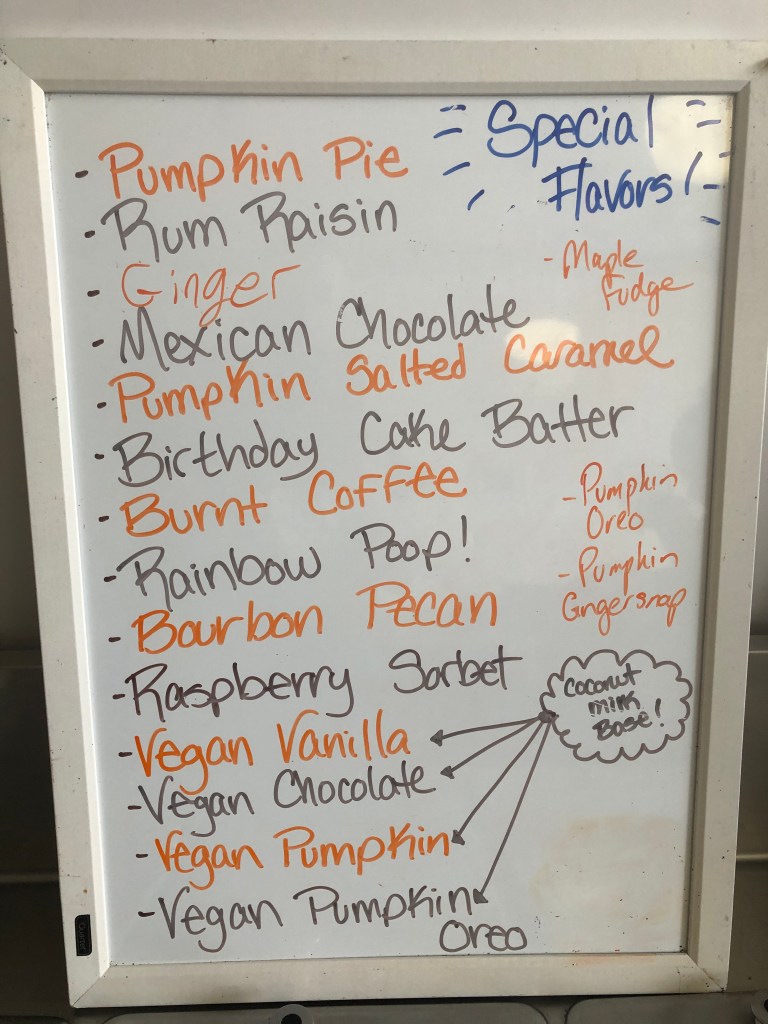 Special
Flavors!
- Pumpkin Pie
- Rum Raisin
- Ginger
- Mexican Chocolate
- Pumpkin Salted Caramel
- Birthday Cake Batter
- Burnt Coffee
- Rainbow Poop!
- Bourbon Pecan
- Raspberry Sorbet
- Vegan Vanilla
- Vegan Chocolate
- Vegan Pumpkin
- Vegan Pumpkin
Oreo
- Maple
Fudge
- Pumpkin
Oreo
- Pumpkin
Gingersnap
Coconut
milk
Base!